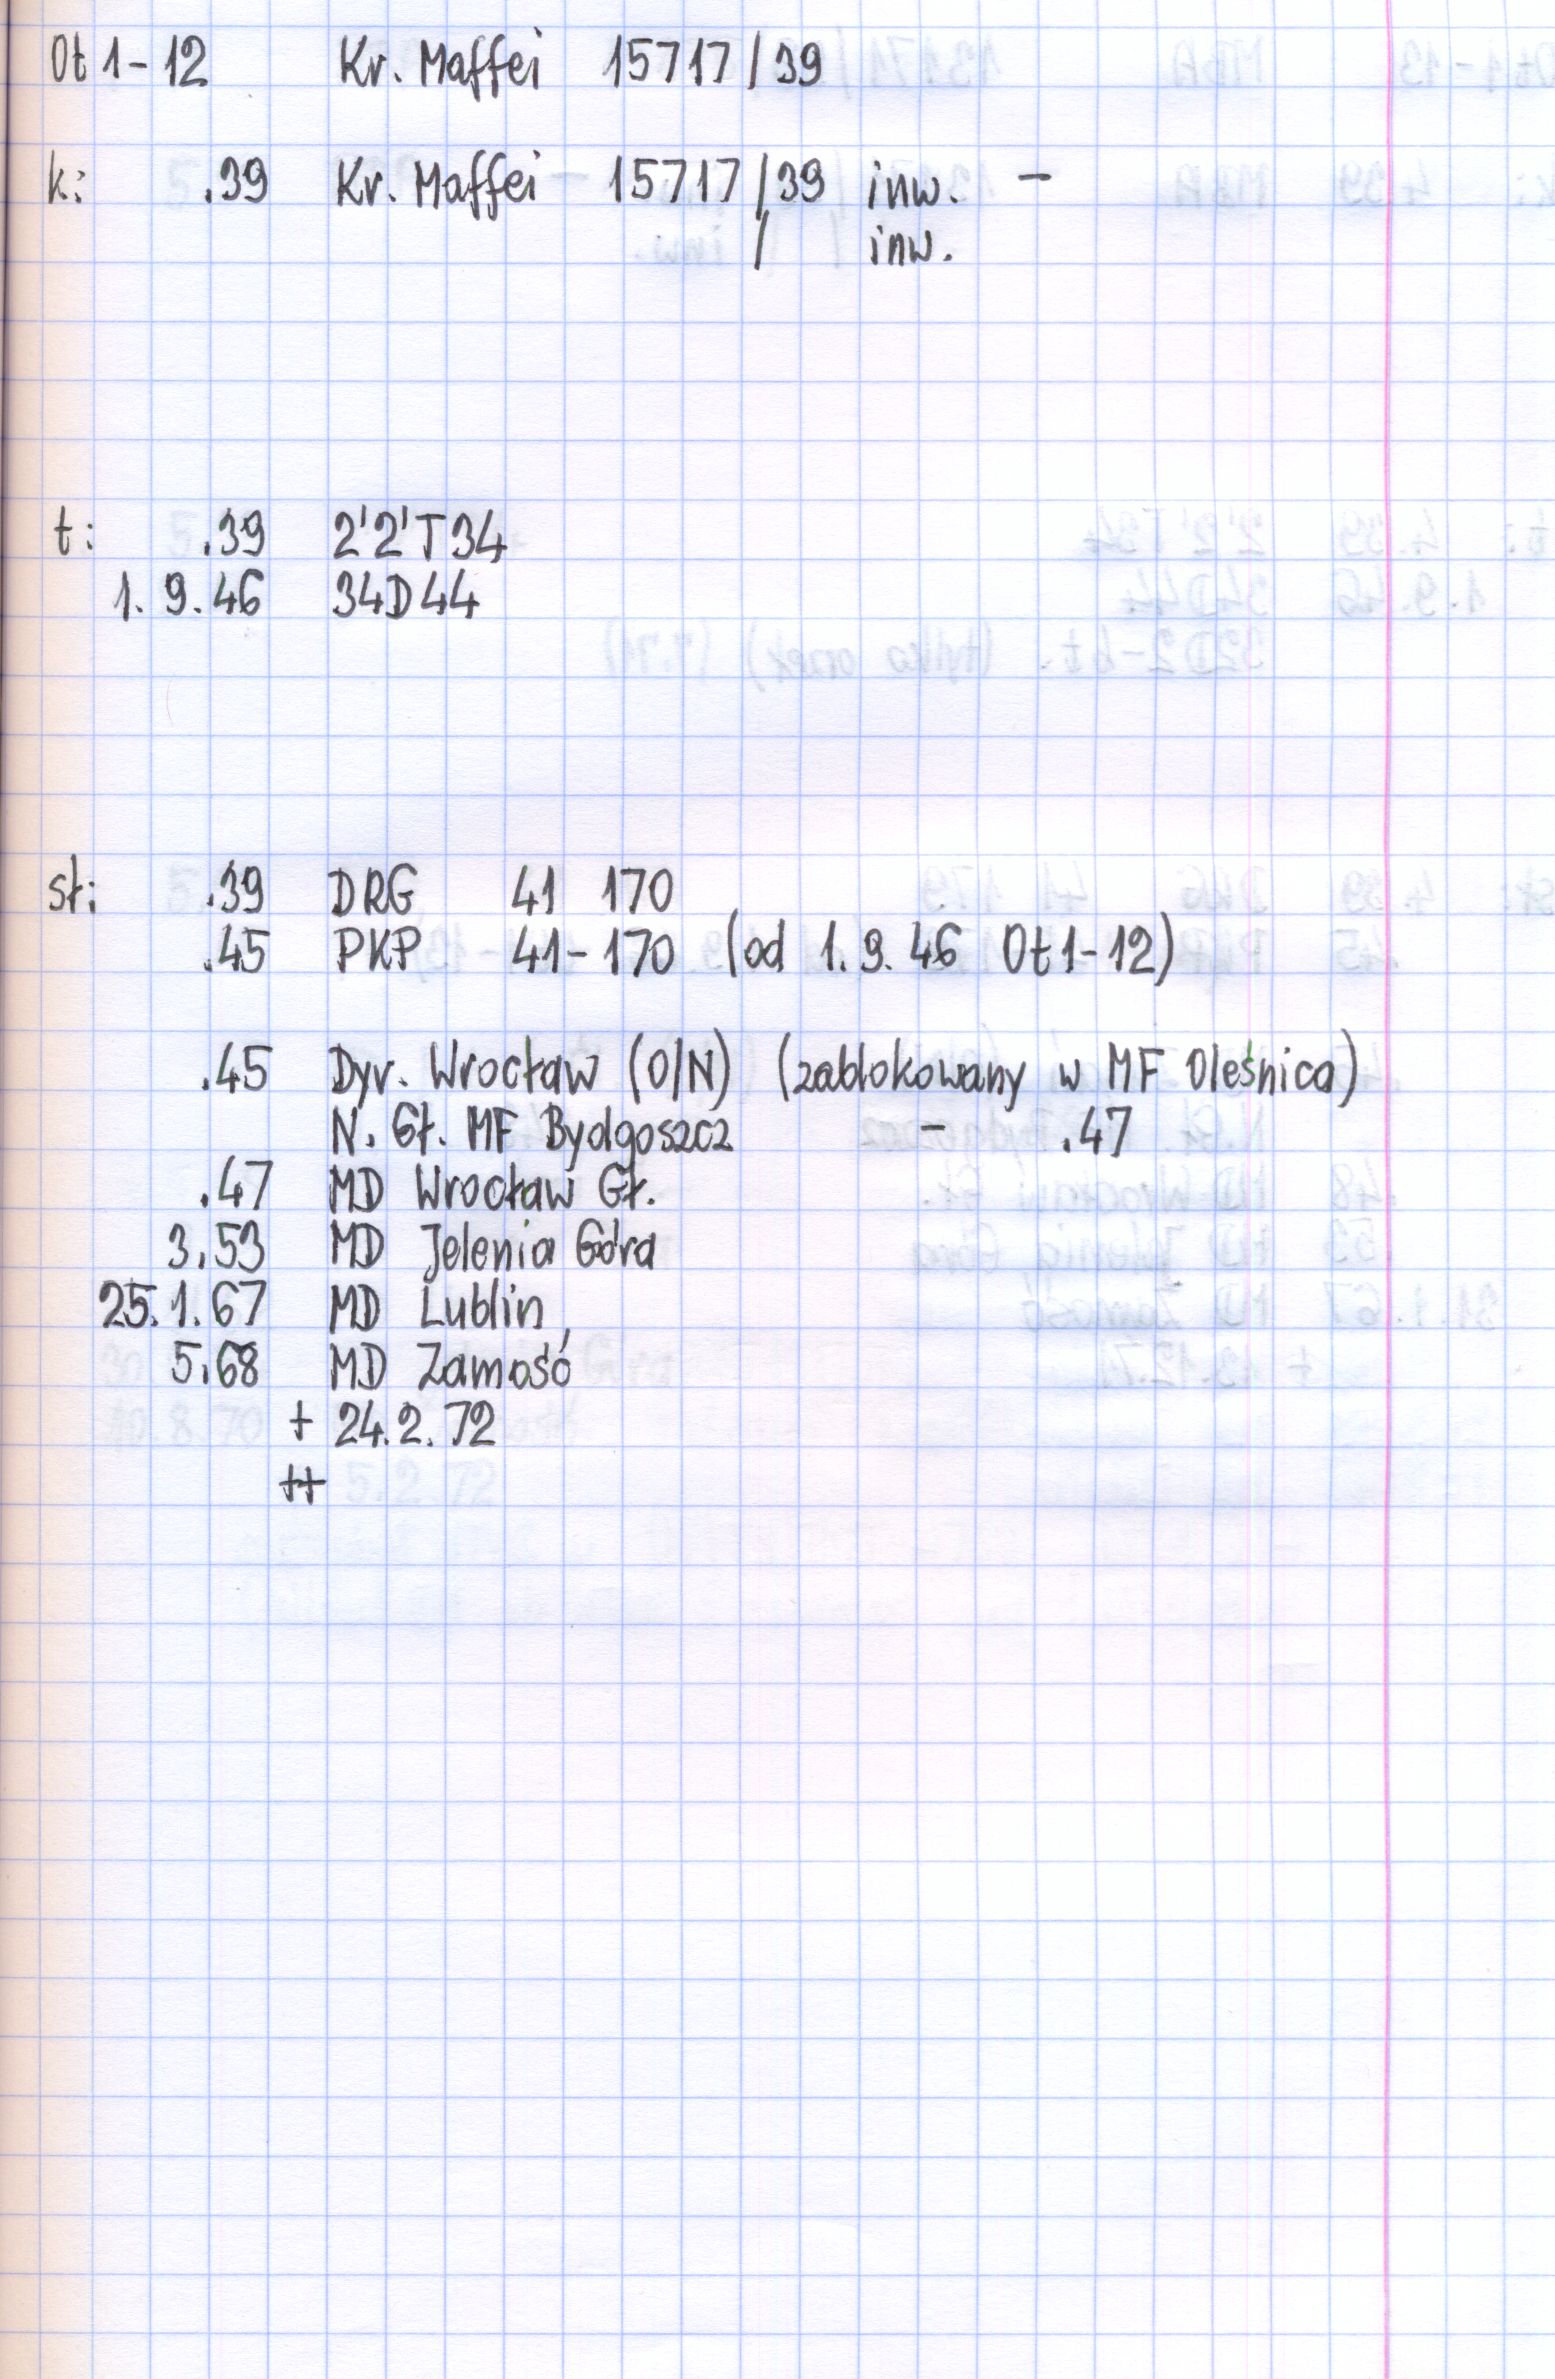 Ot 1-12 Kr. Maffei 15717/39
k: .39 Kr. Maffei 15717/39 inw. -
/ inw.
t: .39 2'2'T34
1.9.46 34D44
st: .39 DRG 41 170
.45 PKP 41-170 (od 1.9.46 Ot1-12)
.45 Dyr. Wrocław (O/N) (zablokowany w MF Oleśnica)
N. Gł. MF Bydgoszcz - .47
.47 MD Wrocław Gł.
3.53 MD Jelenia Góra
25.1.67 MD Lublin
5.68 MD Zamość
+ 24.2.72
++